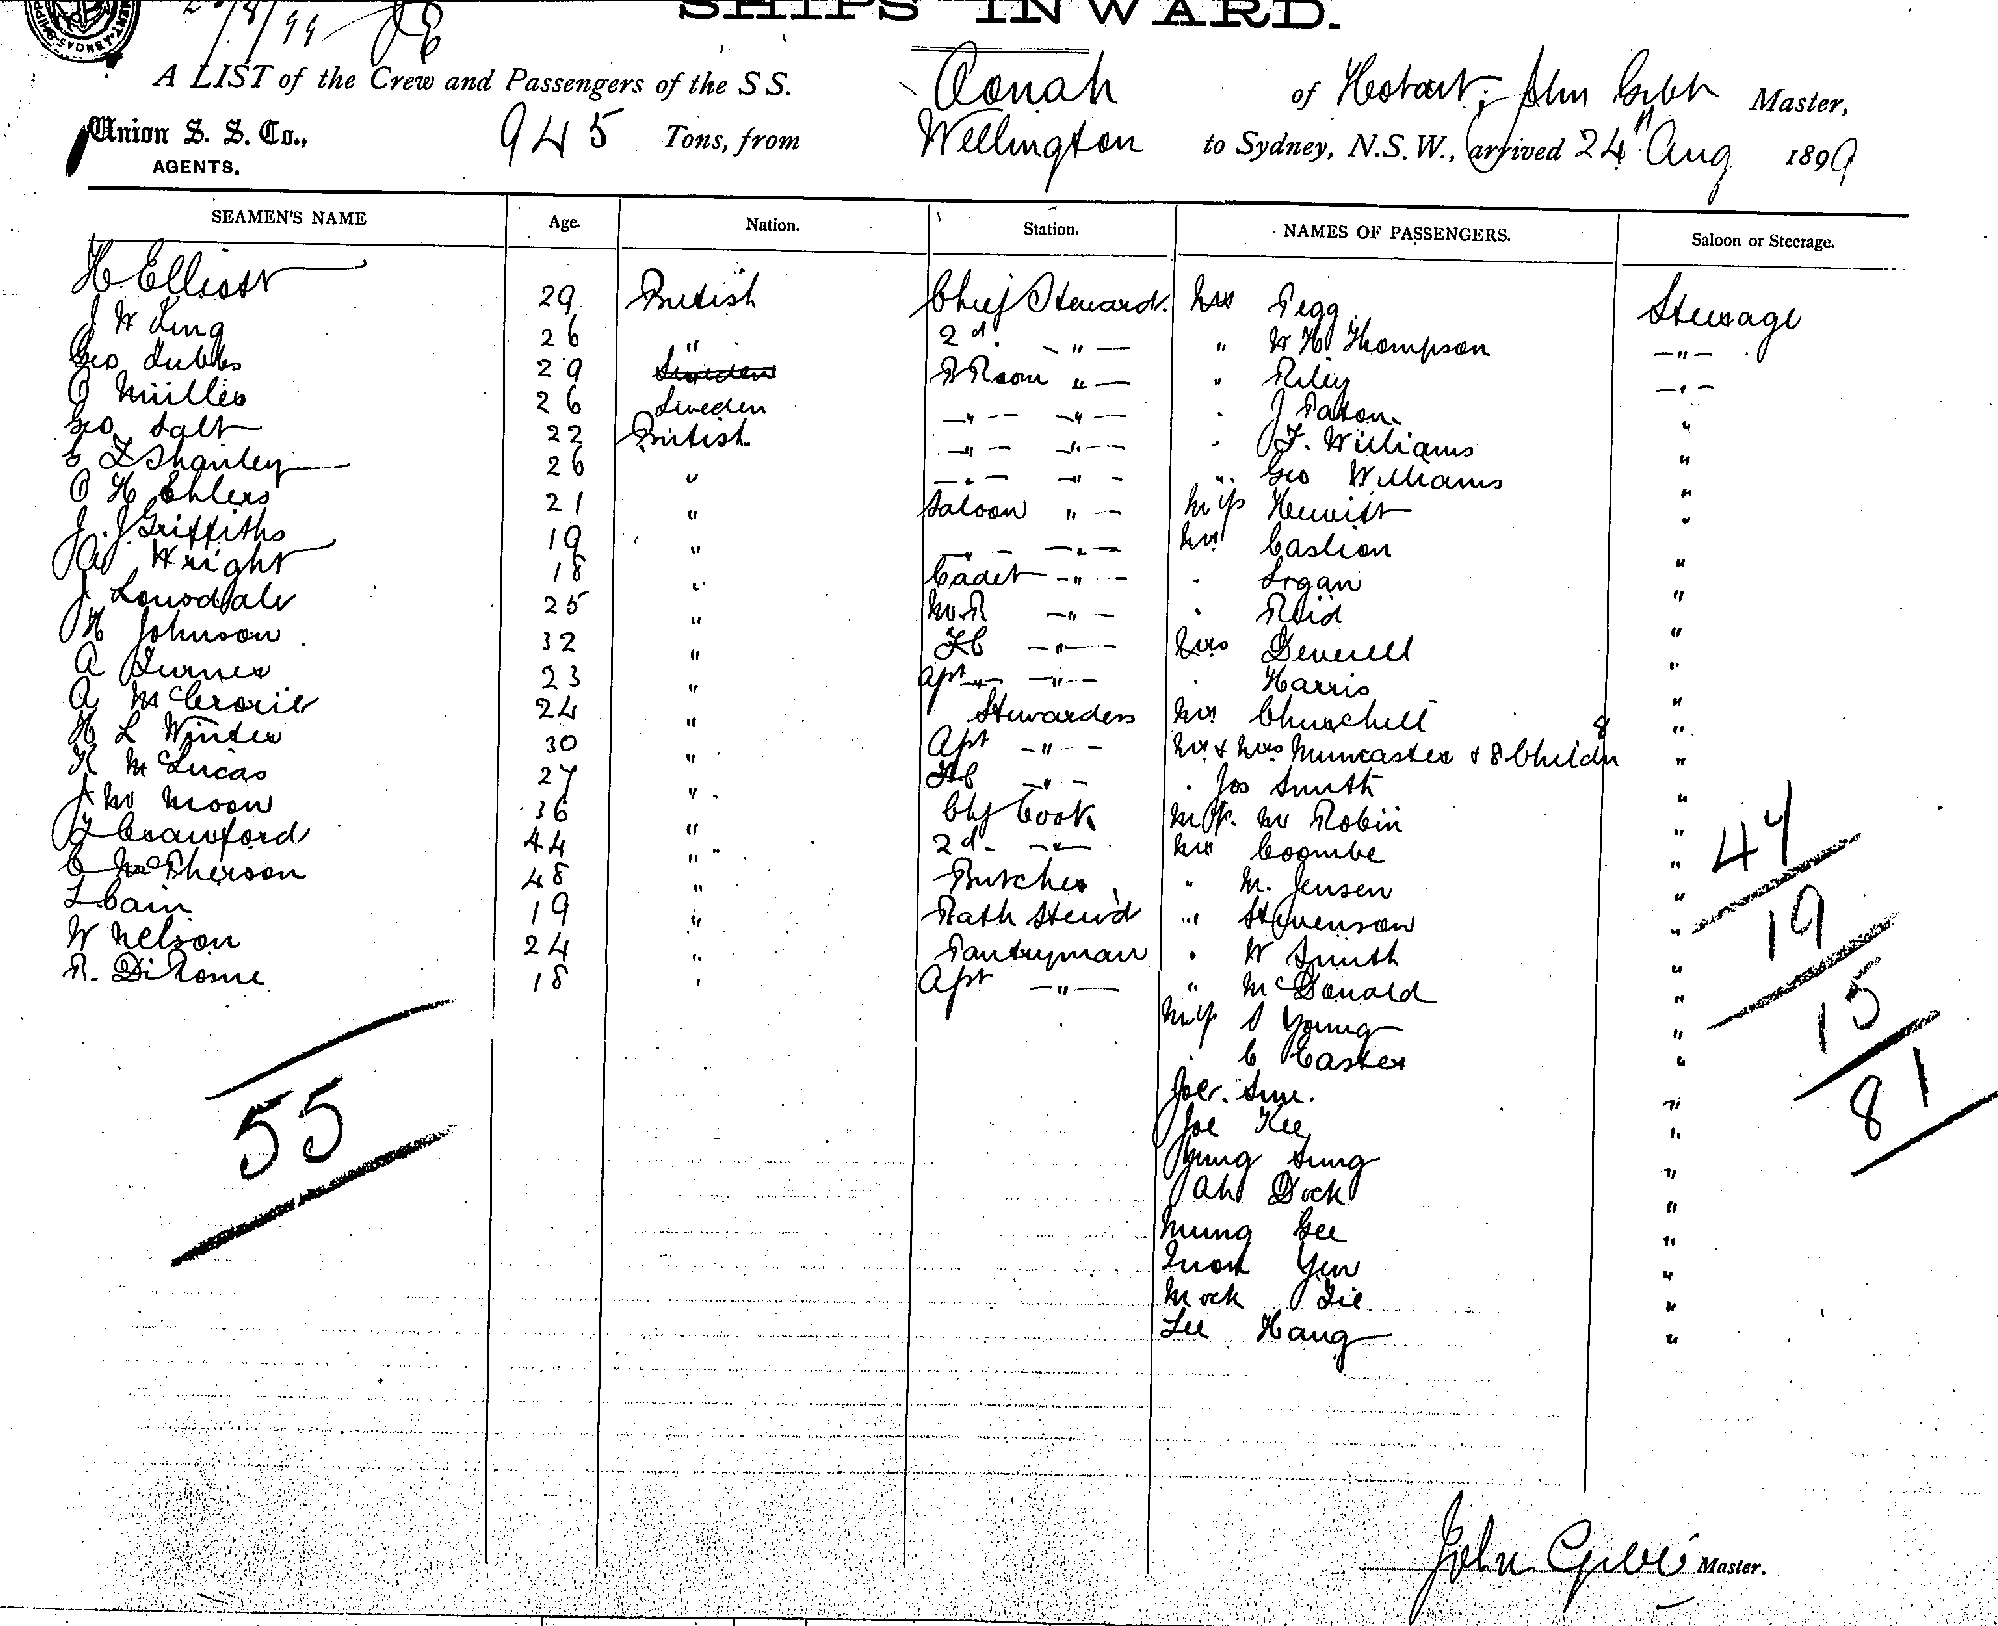 SHIPS INWARD.
A LIST of the Crew and Passengers of the S S. Oonah of Hobart, John Gibb Master,
Union S. S. Co., AGENTS. 945 Tons, from Wellington to Sydney, N.S.W., arrived 24th Aug 1899
SEAMEN'S NAME Age. Nation. Station. NAMES OF PASSENGERS. Saloon or Steerage.
H Elliott 29 British Chief Steward Mr Pegg Steerage
J W King 26 " 2d. " " W H Thompson "
Geo Tubbs 29 Sweden B Room " " Riley "
O Müller 26 Sweden " " " J Paton "
Geo Salt 22 British " " " F. Williams "
26 " " " " Geo Williams "
O H Ehlers 21 " Saloon " Miss Hewitt "
J. J. Griffiths 19 " " " Mr "
A Wright 18 " Cadet " " Logan "
J Lonsdale 25 " " " Reid "
H Johnson 32 " " Mrs Deverell "
A Turner 23 " " " Harris "
A McCrorie 24 " Stewardess Mr Churchill "
H L Winter 30 " " Mr & Mrs Muncaster & 8 Childn "
McLucas 27 " " " Jos Smith "
J W Moon 36 " Chf Cook Miss M Robin "
F Crawford 44 " 2d " Mr Coombe "
C McPherson 48 " Butcher " M. Jensen "
L Cain 19 " Bath Stew'd " Stevenson "
W Nelson 24 " Pantryman " W Smith "
R. DiRome 18 " " " McDonald "
Miss S Young "
" C Easter "
Joe "
Joe Kee "
Sung "
Ah Dock "
Mung Gee "
Yen "
Mock "
Lee Hang "
55
47
19
15
81
John Gibb Master.